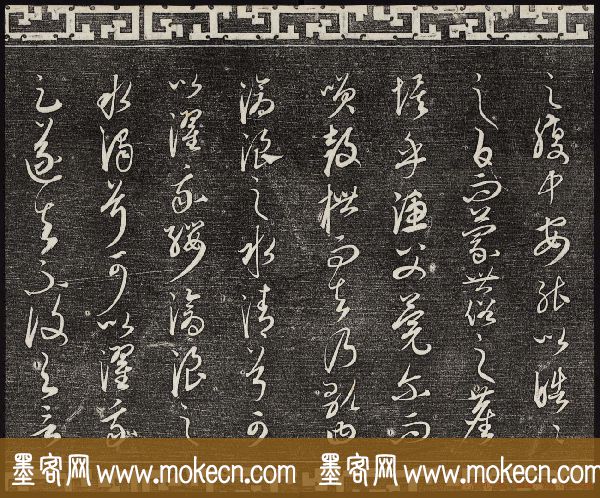 之腹中安能以皓々
之白而蒙世俗之塵
埃乎漁父莞尔而
咲鼓枻而去乃歌曰
滄浪之水清兮可
以濯我纓滄浪之
水濁兮可以濯我
足遂去不復與言
墨客网 www.mokecn.com 墨客网 www.mokecn.com